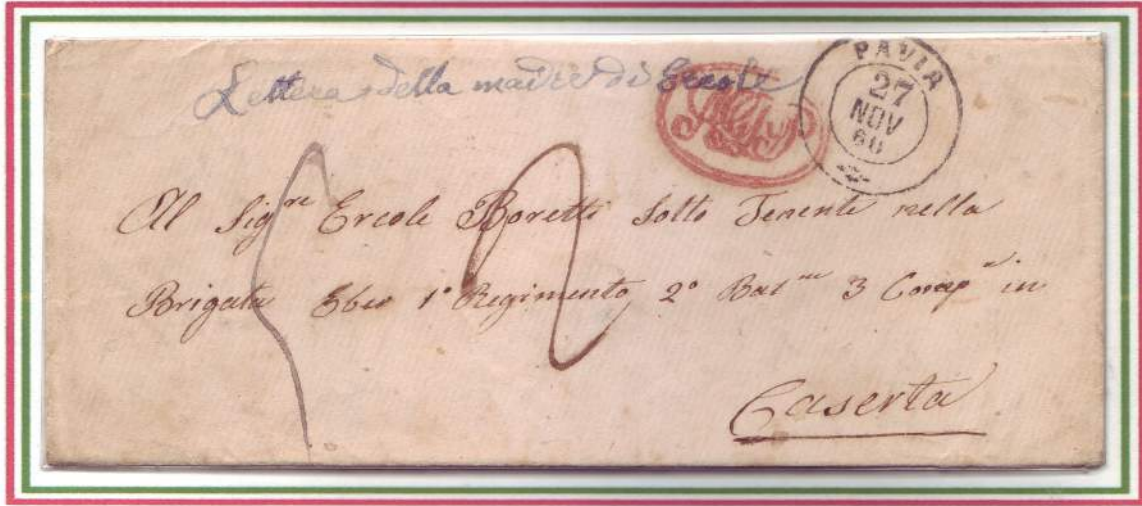 Lettera della madre di Ercole
PAVIA
27
NOV
60
Al Sig.re Ercole Boretti Sotto Tenente nella
Brigata Eber 1° Regimento 2° Bat.ne 3 Comp.a in
Caserta